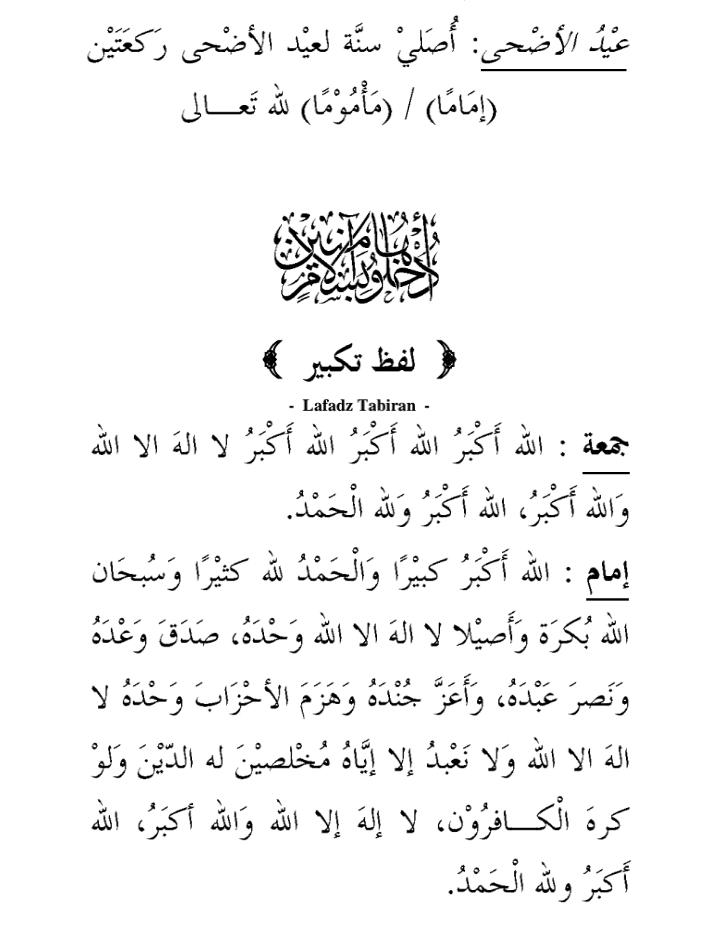 عيْدُ الأضْحى: أُصَليْ سنَّة لعيْد الأضْحى رَكعَتَيْن
(إمَامًا) / (مَأْمُوْمًا) لله تَعـــالى
أُدْخُلُوهَا بِسَلَامٍ آمِنِينَ
لفظ تكبير
- Lafadz Tabiran -
جمعة : الله أَكْبَرُ الله أَكْبَرُ الله أَكْبَرُ لا الهَ الا الله
وَالله أَكْبَرُ، الله أَكْبَرُ وَلله الْحَمْدُ.
إمام : الله أَكْبَرُ كبيْرًا وَالْحَمْدُ لله كثيْرًا وَسُبحَان
الله بُكرَة وَأَصيْلا لا الهَ الا الله وَحْدَهُ، صَدَقَ وَعْدَهُ
وَنَصرَ عَبْدَهُ، وَأَعَزَّ جُنْدَهُ وَهَزَمَ الأحْزَابَ وَحْدَهُ لا
الهَ الا الله وَلا نَعْبدُ إلا إيَّاهُ مُخْلصيْنَ له الدّيْنَ وَلوْ
كرهَ الْكـــافرُوْن، لا إلهَ إلا الله وَالله أكبَرُ، الله
أَكبَرُ ولله الْحَمْدُ.